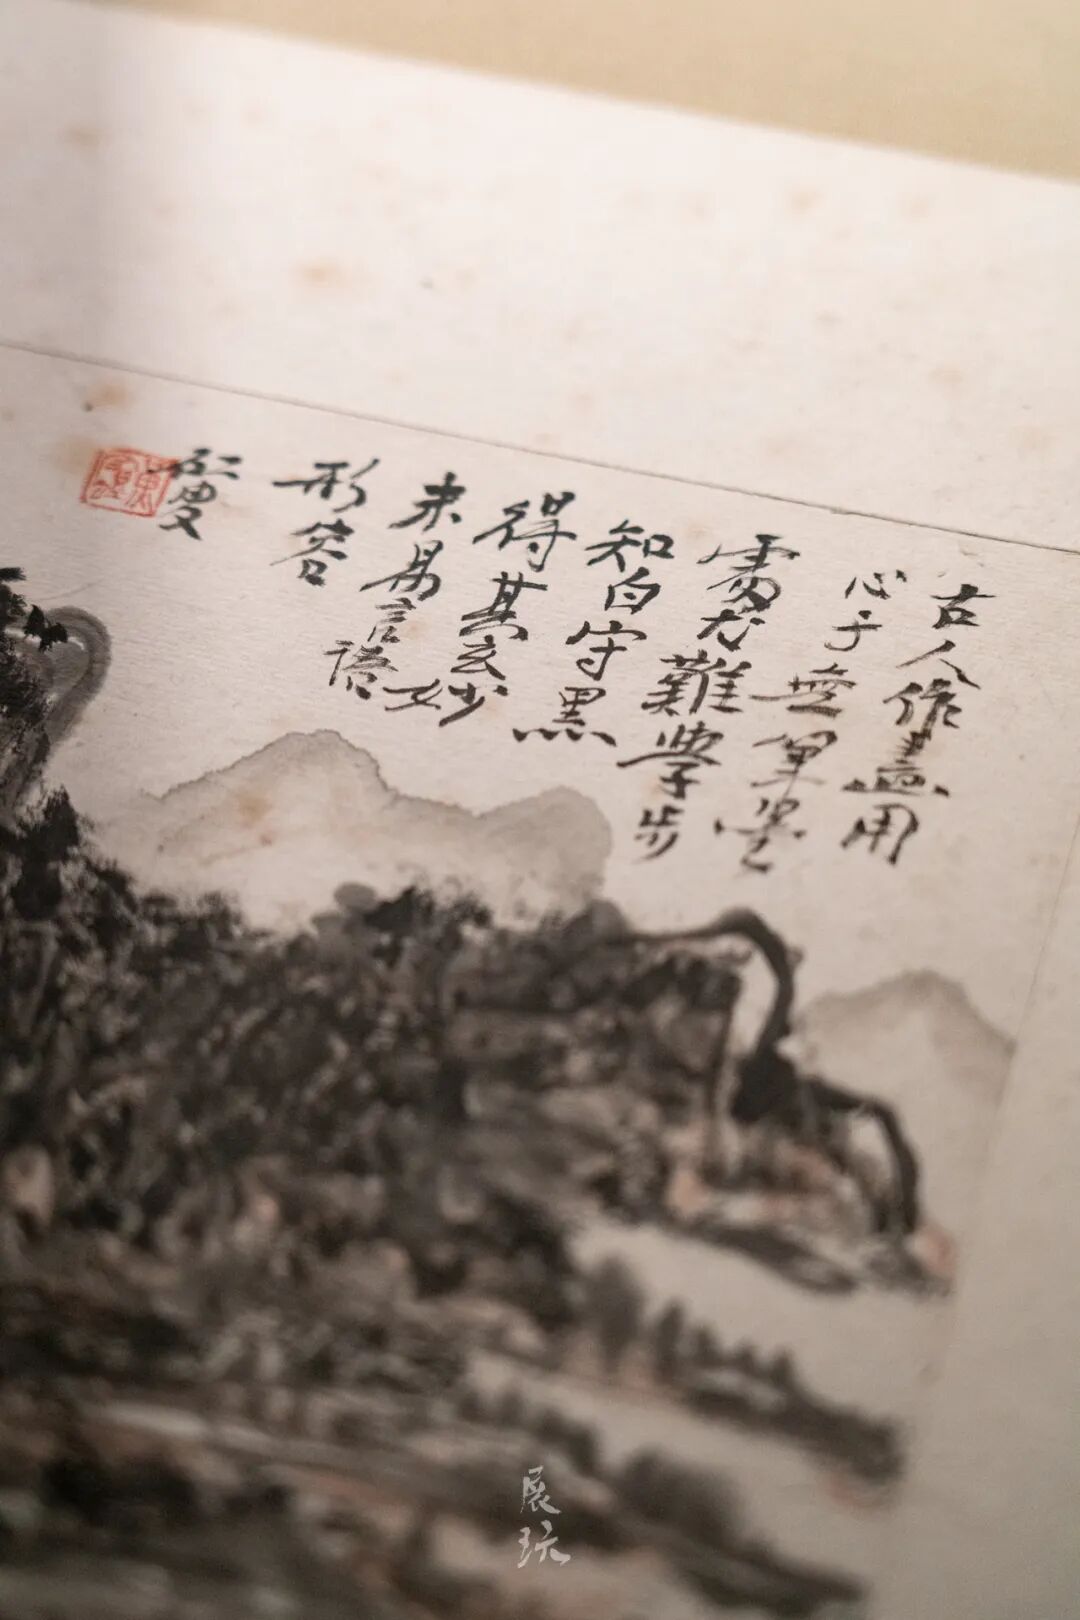 古人作畫用
心于無筆墨
處尤難學步
知白守黑
得其玄妙
未易言語
形容
虹叟
黃賓虹
展玩